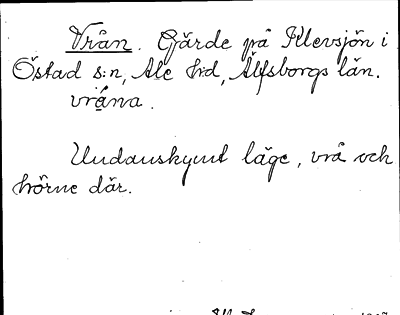 Vrån. Gärde på Klevsjön i
Östad s:n, Ale h:d, Älfsborgs län.
vråna.
Undanskymt läge, vrå och
hörne där.